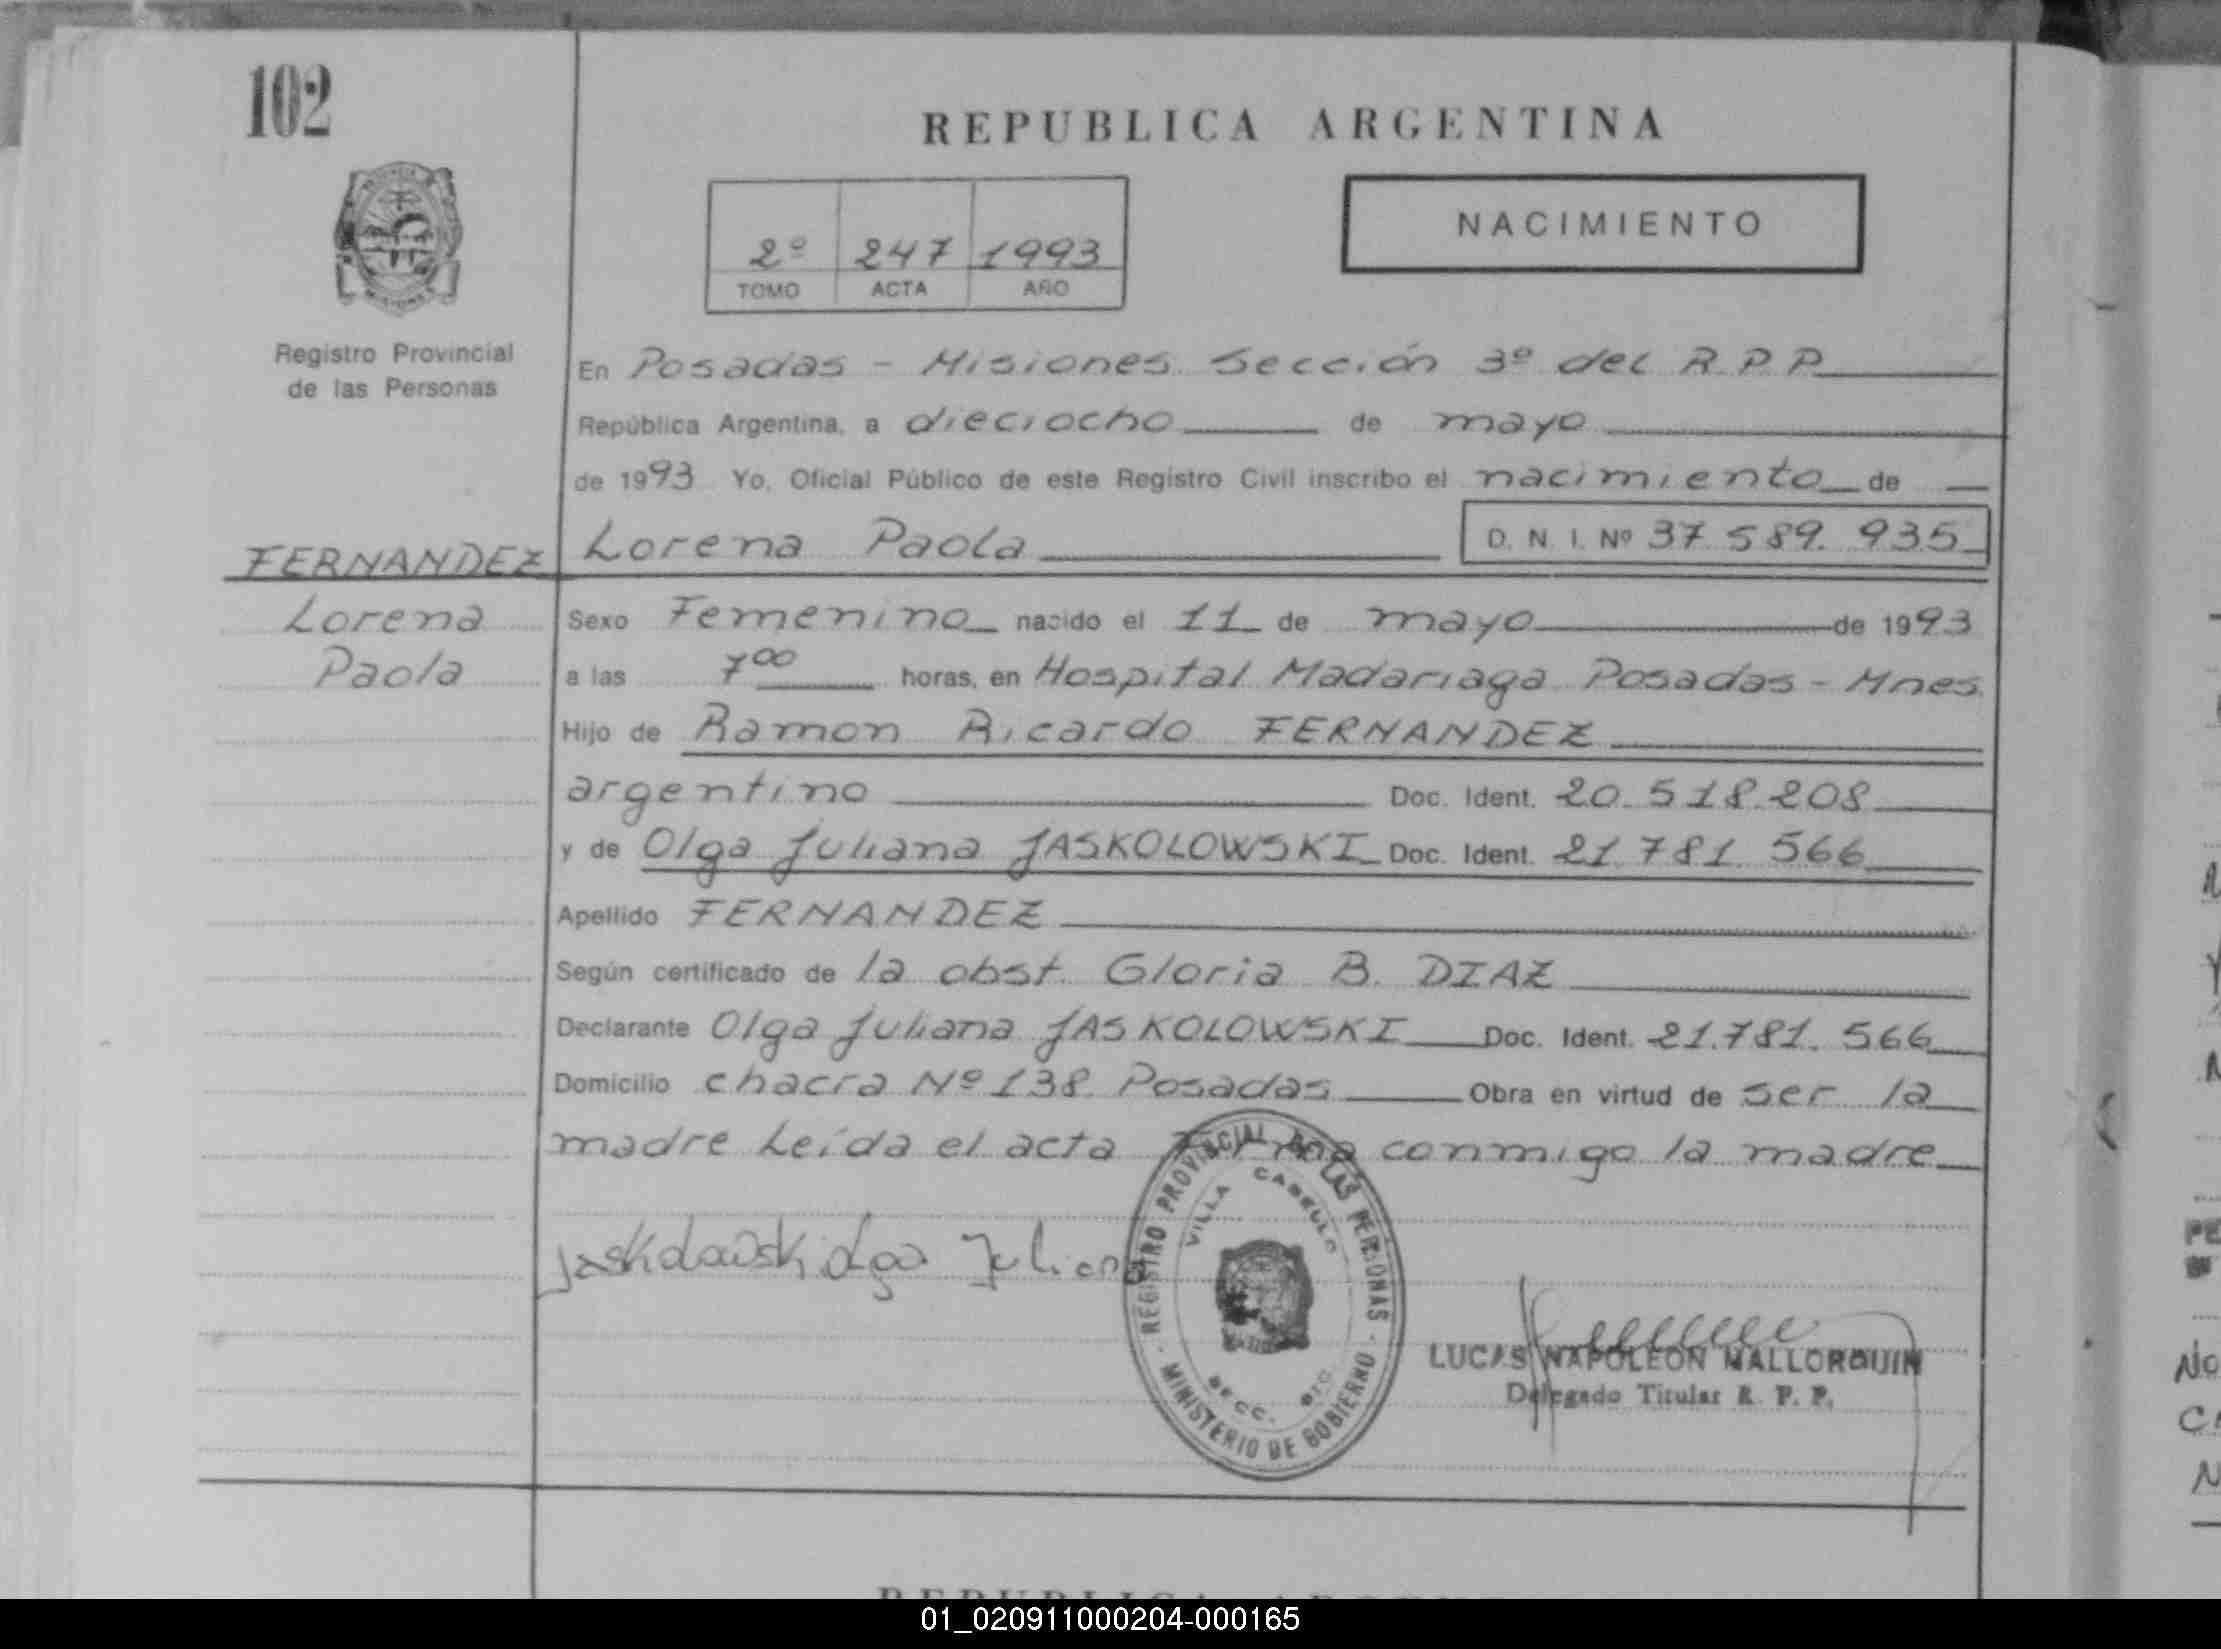 102
REPUBLICA ARGENTINA
2º 247 1993
TOMO ACTA AÑO
NACIMIENTO
Registro Provincial
de las Personas
En Posadas - Misiones Sección 3º del R.P.P.
República Argentina, a dieciocho de mayo
de 1993 Yo, Oficial Público de este Registro Civil inscribo el nacimiento de
FERNANDEZ Lorena Paola D. N. I. Nº 37.589.935
Lorena
Paola
Sexo Femenino nacido el 11 de mayo de 1993
a las 7⁰⁰ horas, en Hospital Madariaga Posadas - Mnes.
Hijo de Ramon Ricardo FERNANDEZ
argentino Doc. Ident. 20.518.208
y de Olga Juliana JASKOLOWSKI Doc. Ident. 21.781.566
Apellido FERNANDEZ
Según certificado de la obst. Gloria B. DIAZ
Declarante Olga Juliana JASKOLOWSKI Doc. Ident. 21.781.566
Domicilio chacra Nº 138 Posadas Obra en virtud de ser la
madre Leída el acta Firma conmigo la madre
Jaskolowski Olga Juliana
REGISTRO PROVINCIAL DE LAS PERSONAS
VILLA CABELLO
SECC.
MINISTERIO DE GOBIERNO
LUCAS NAPOLEON MALLORQUIN
Delegado Titular R. P. P.
01_020911000204-000165